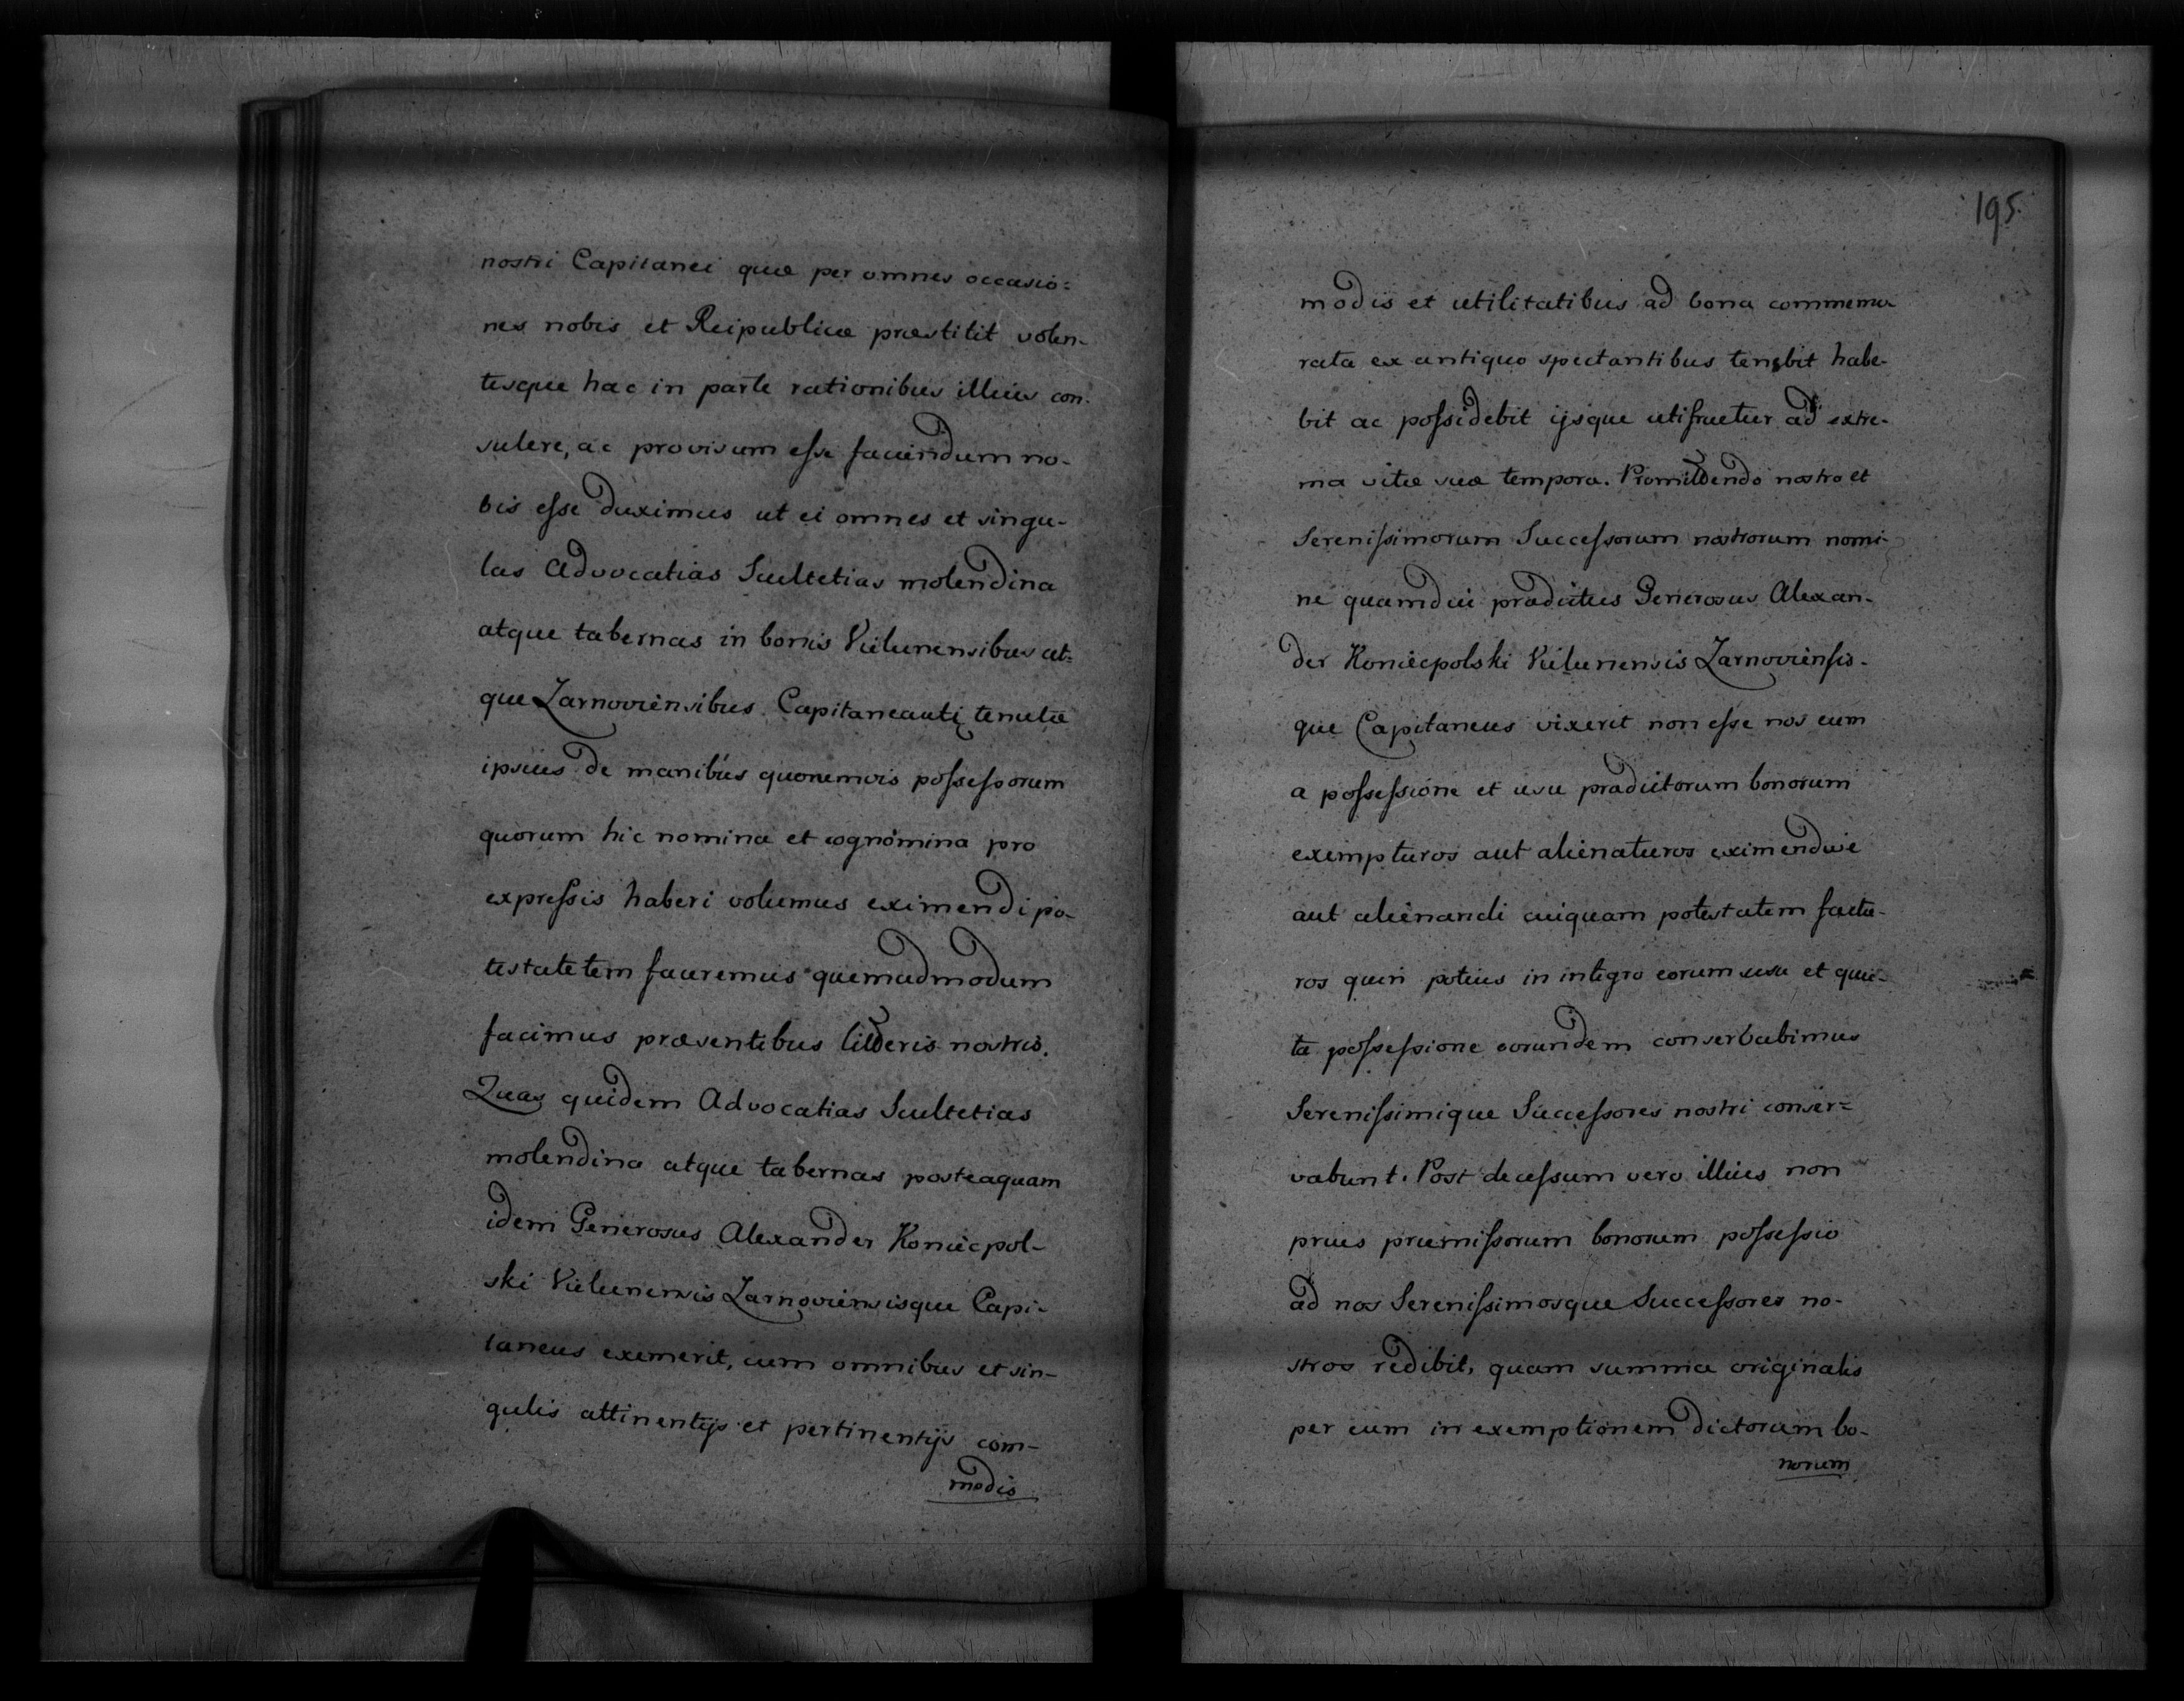 nostri Capitanei quæ per omnes occasio=
nes nobis et Reipublicæ præstitit volen-
tesque hac in parte rationibus illius con-
sulere, ac provisum esse faciendum no-
bis esse duximus ut ei omnes et singu-
las Advocatias Scultetias molendina
atque tabernas in bonis Vielunensibus at=
que Zarnoviensibus Capitaneauti tenutæ
ipsius de manibus quorumvis possessorum
quorum hic nomina et cognomina pro
expressis haberi volumus eximendi po-
testatetem faceremus quemadmodum
facimus præsentibus litteris nostris.
Quas quidem Advocatias Scultetias
molendina atque tabernas posteaquam
idem Generosus Alexander Koniecpol-
ski Vielunensis Zarnoviensisque Capi-
taneus exemerit, cum omnibus et sin-
gulis attinentijs et pertinentijs com-
modis
195.
modis et utilitatibus ad bona commemo
rata ex antiquo spectantibus tenebit habe-
bit ac possidebit ijsque utifruetur ad extre-
ma vitæ suæ tempora. Promittendo nostro et
Serenissimorum Successorum nostrorum nomi-
ne quamdiu pradictus Generosus Alexan-
der Koniecpolski Vielunensis Zarnoviensis-
que Capitaneus vixerit non esse nos eum
a possessione et usu pradictorum bonorum
exempturos aut alienaturos eximendive
aut alienandi cuiquam potestatem factu-
ros quin potius in integro eorum usu et quie-
ta possessione eorundem conservabimus
Serenissimique Successores nostri conser=
vabunt. Post decessum vero illius non
prius præmissorum bonorum possessio
ad nos Serenissimosque Successores no-
stros redibit, quam summa originalis
per eum in exemptionem dictorum bo-
norum